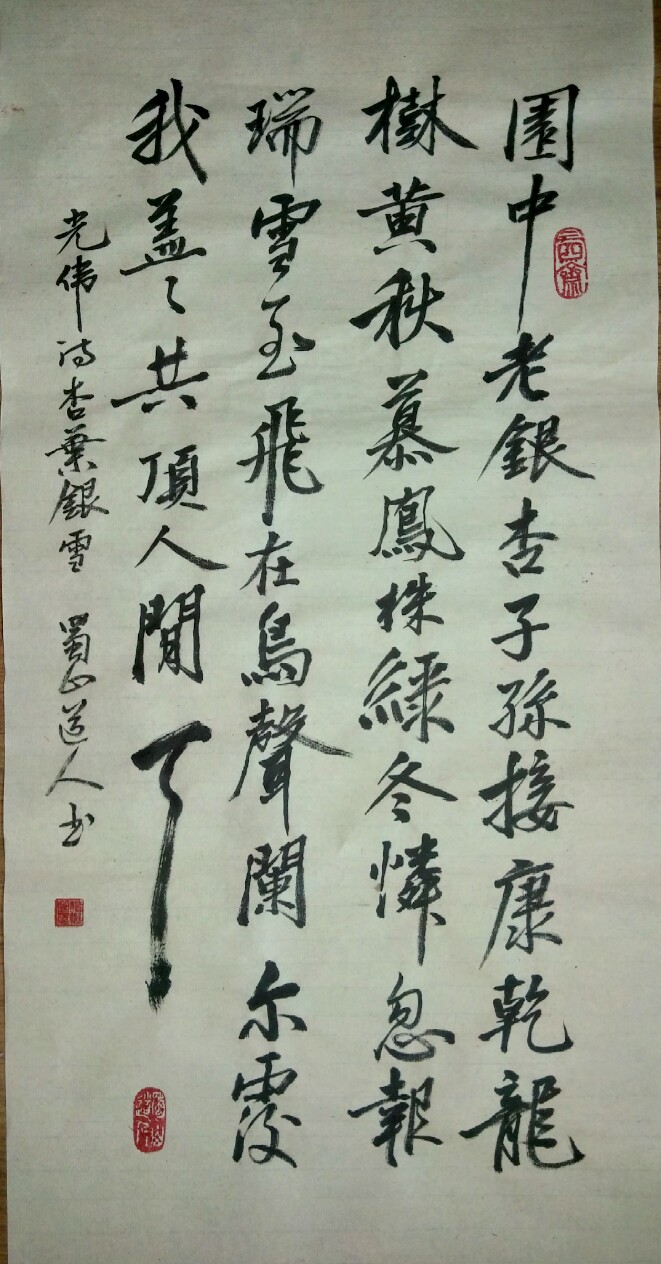 園中老銀杏子孫接康乾龍
樹黄秋慕鳳株緑冬憐忽報
瑞雪至飛在鳥聲闌尔霞
我蓋々共頂人間了
光伟诗杏葉銀雪 蜀山道人书